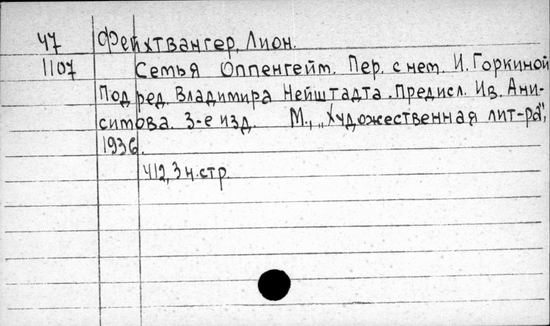 47 Фейхтвангер, Лион.
1107 Семья Оппенгейм. Пер. с нем. И. Горкиной
Под ред. Владимира Нейштадта. Предисл. Ив. Ани-
ситова. 3-е изд. М., „Художественная лит-ра",
1936.
412, 3 н. стр.